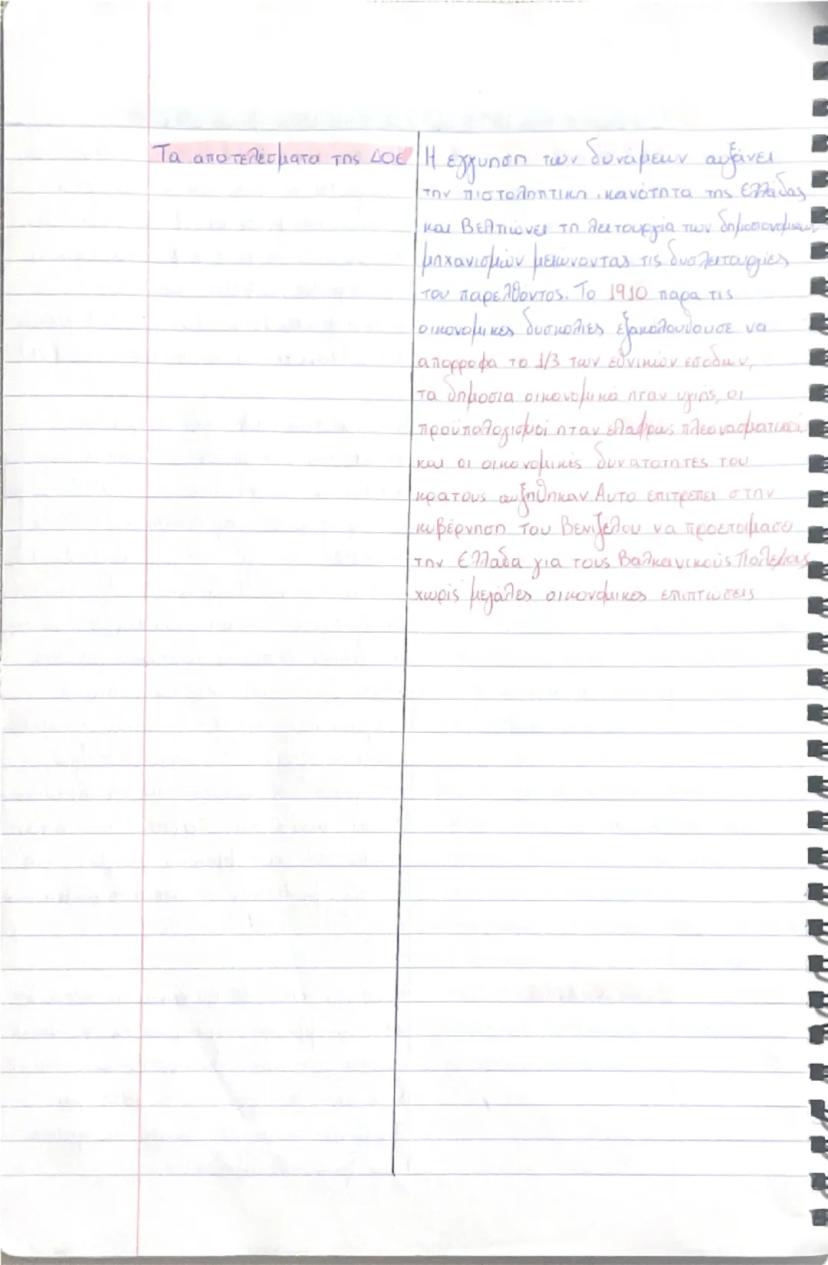 Τα αποτελέσματα της ΔΟΕ
Η εγγυηση των δυνάμεων αυξάνει
την πιστοληπτικη ικανότητα της Ελλάδας
και Βελτιώνει τη λειτουργία των δημοσιονομικών
μηχανισμών μειώνοντας τις δυσλειτουργίες
του παρελθοντος. Το 1910 παρα τις
οικονομικες δυσκολίες εξακολουθουσε να
απορροφα το 1/3 των εθνικών εσοδων,
τα δημοσια οικονομικά ηταν υγιής, οι
προϋπολογισμοί ηταν ελαφρώς πλεονασματικοί
και οι οικονομικές δυνατοτητες του
κρατους αυξηθηκαν Αυτο επιτρεπει στην
κυβέρνηση του Βενιζελου να προετοιμασει
την Ελλάδα για τους Βαλκανικούς Πολέμους
χωρίς μεγάλες οικονομικες επιπτώσεις